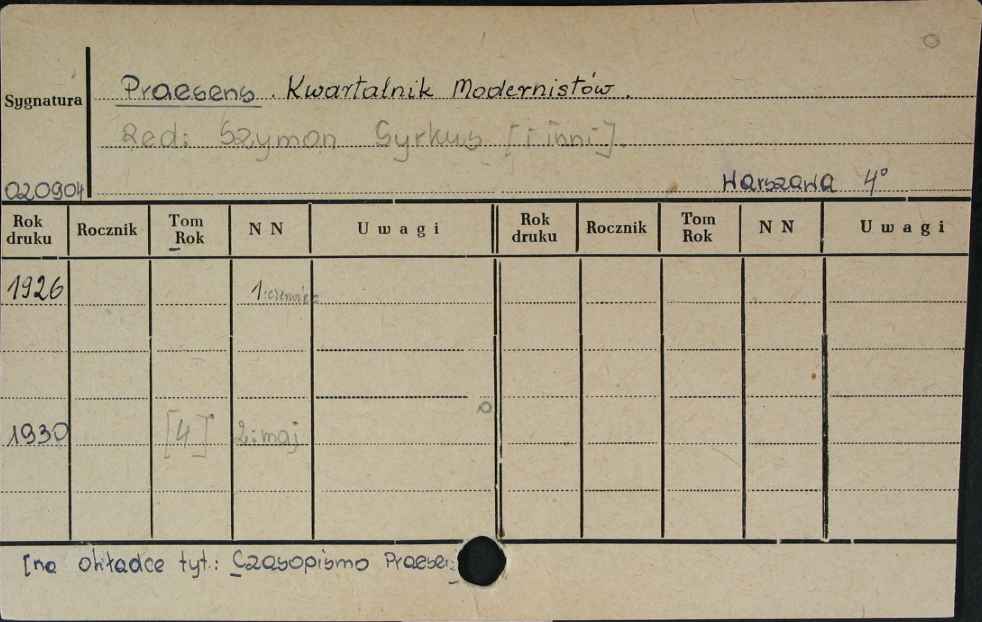 Praesens. Kwartalnik Modernistów.
Sygnatura
Red: Szymon Syrkus [i inni].
020904
Warszawa 4°
Rok druku Rocznik Tom Rok N N Uwagi Rok druku Rocznik Tom Rok N N Uwagi
1926 1:czerwiec
1930 [4] 2:maj
[na okładce tyt.: Czasopismo